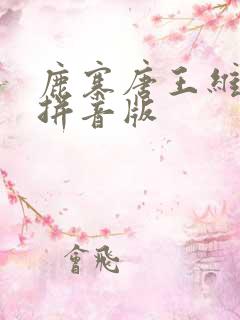 鹿寨唐王維
拼音版
會飛